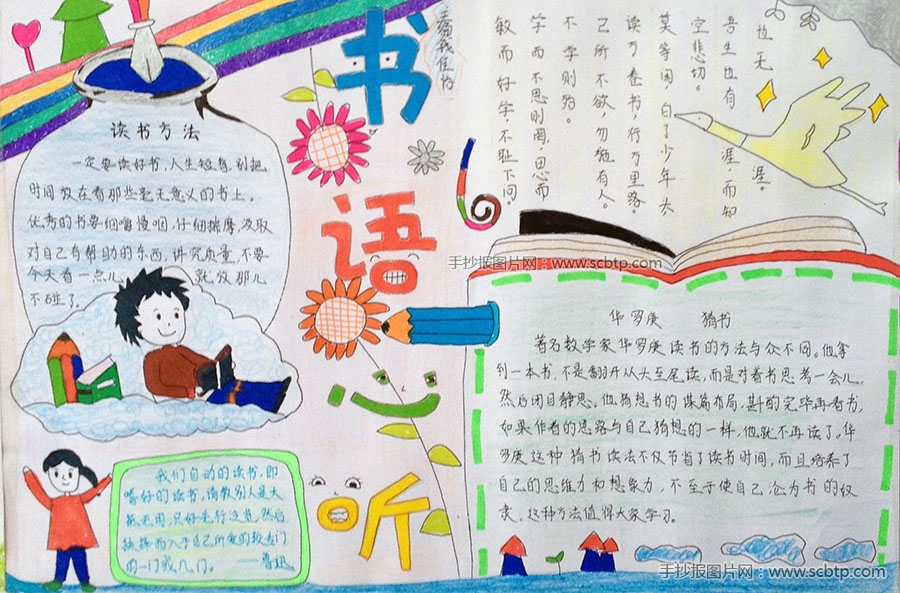 书语心听
读书方法
一定要读好书，人生短暂，别把
时间放在看那些毫无意义的书上。
优秀的书要细嚼慢咽，仔细揣摩，汲取
对自己有帮助的东西，讲究质量，不要
今天看一点儿，就放那儿
不碰了。
我们自动的读书，即
嗜好的读书，请教别人是大
抵无用，只好先行泛览，然后
抉择而入于自己所爱的较专门
的一门或几门。——鲁迅
吾生也有涯，而知
也无涯。
莫等闲，白了少年头
空悲切。
读万卷书，行万里路。
己所不欲，勿施有人。
不学则殆。
学而不思则罔，思而
敏而好学，不耻下问。
手抄报图片网：www.scbtp.com
华罗庚 猜书
著名数学家华罗庚读书的方法与众不同。他拿
到一本书，不是翻开从头至尾读，而是对着书思考一会儿，
然后闭目静思。他猜想书的谋篇布局，斟酌完毕再看书，
如果作者的思路与自己猜想的一样，他就不再读了。华
罗庚这种猜书读法不仅节省了读书时间，而且培养了
自己的思维力和想象力，不至于使自己沦为书的奴
隶。这种方法值得大家学习。
手抄报图片网：www.scbtp.com